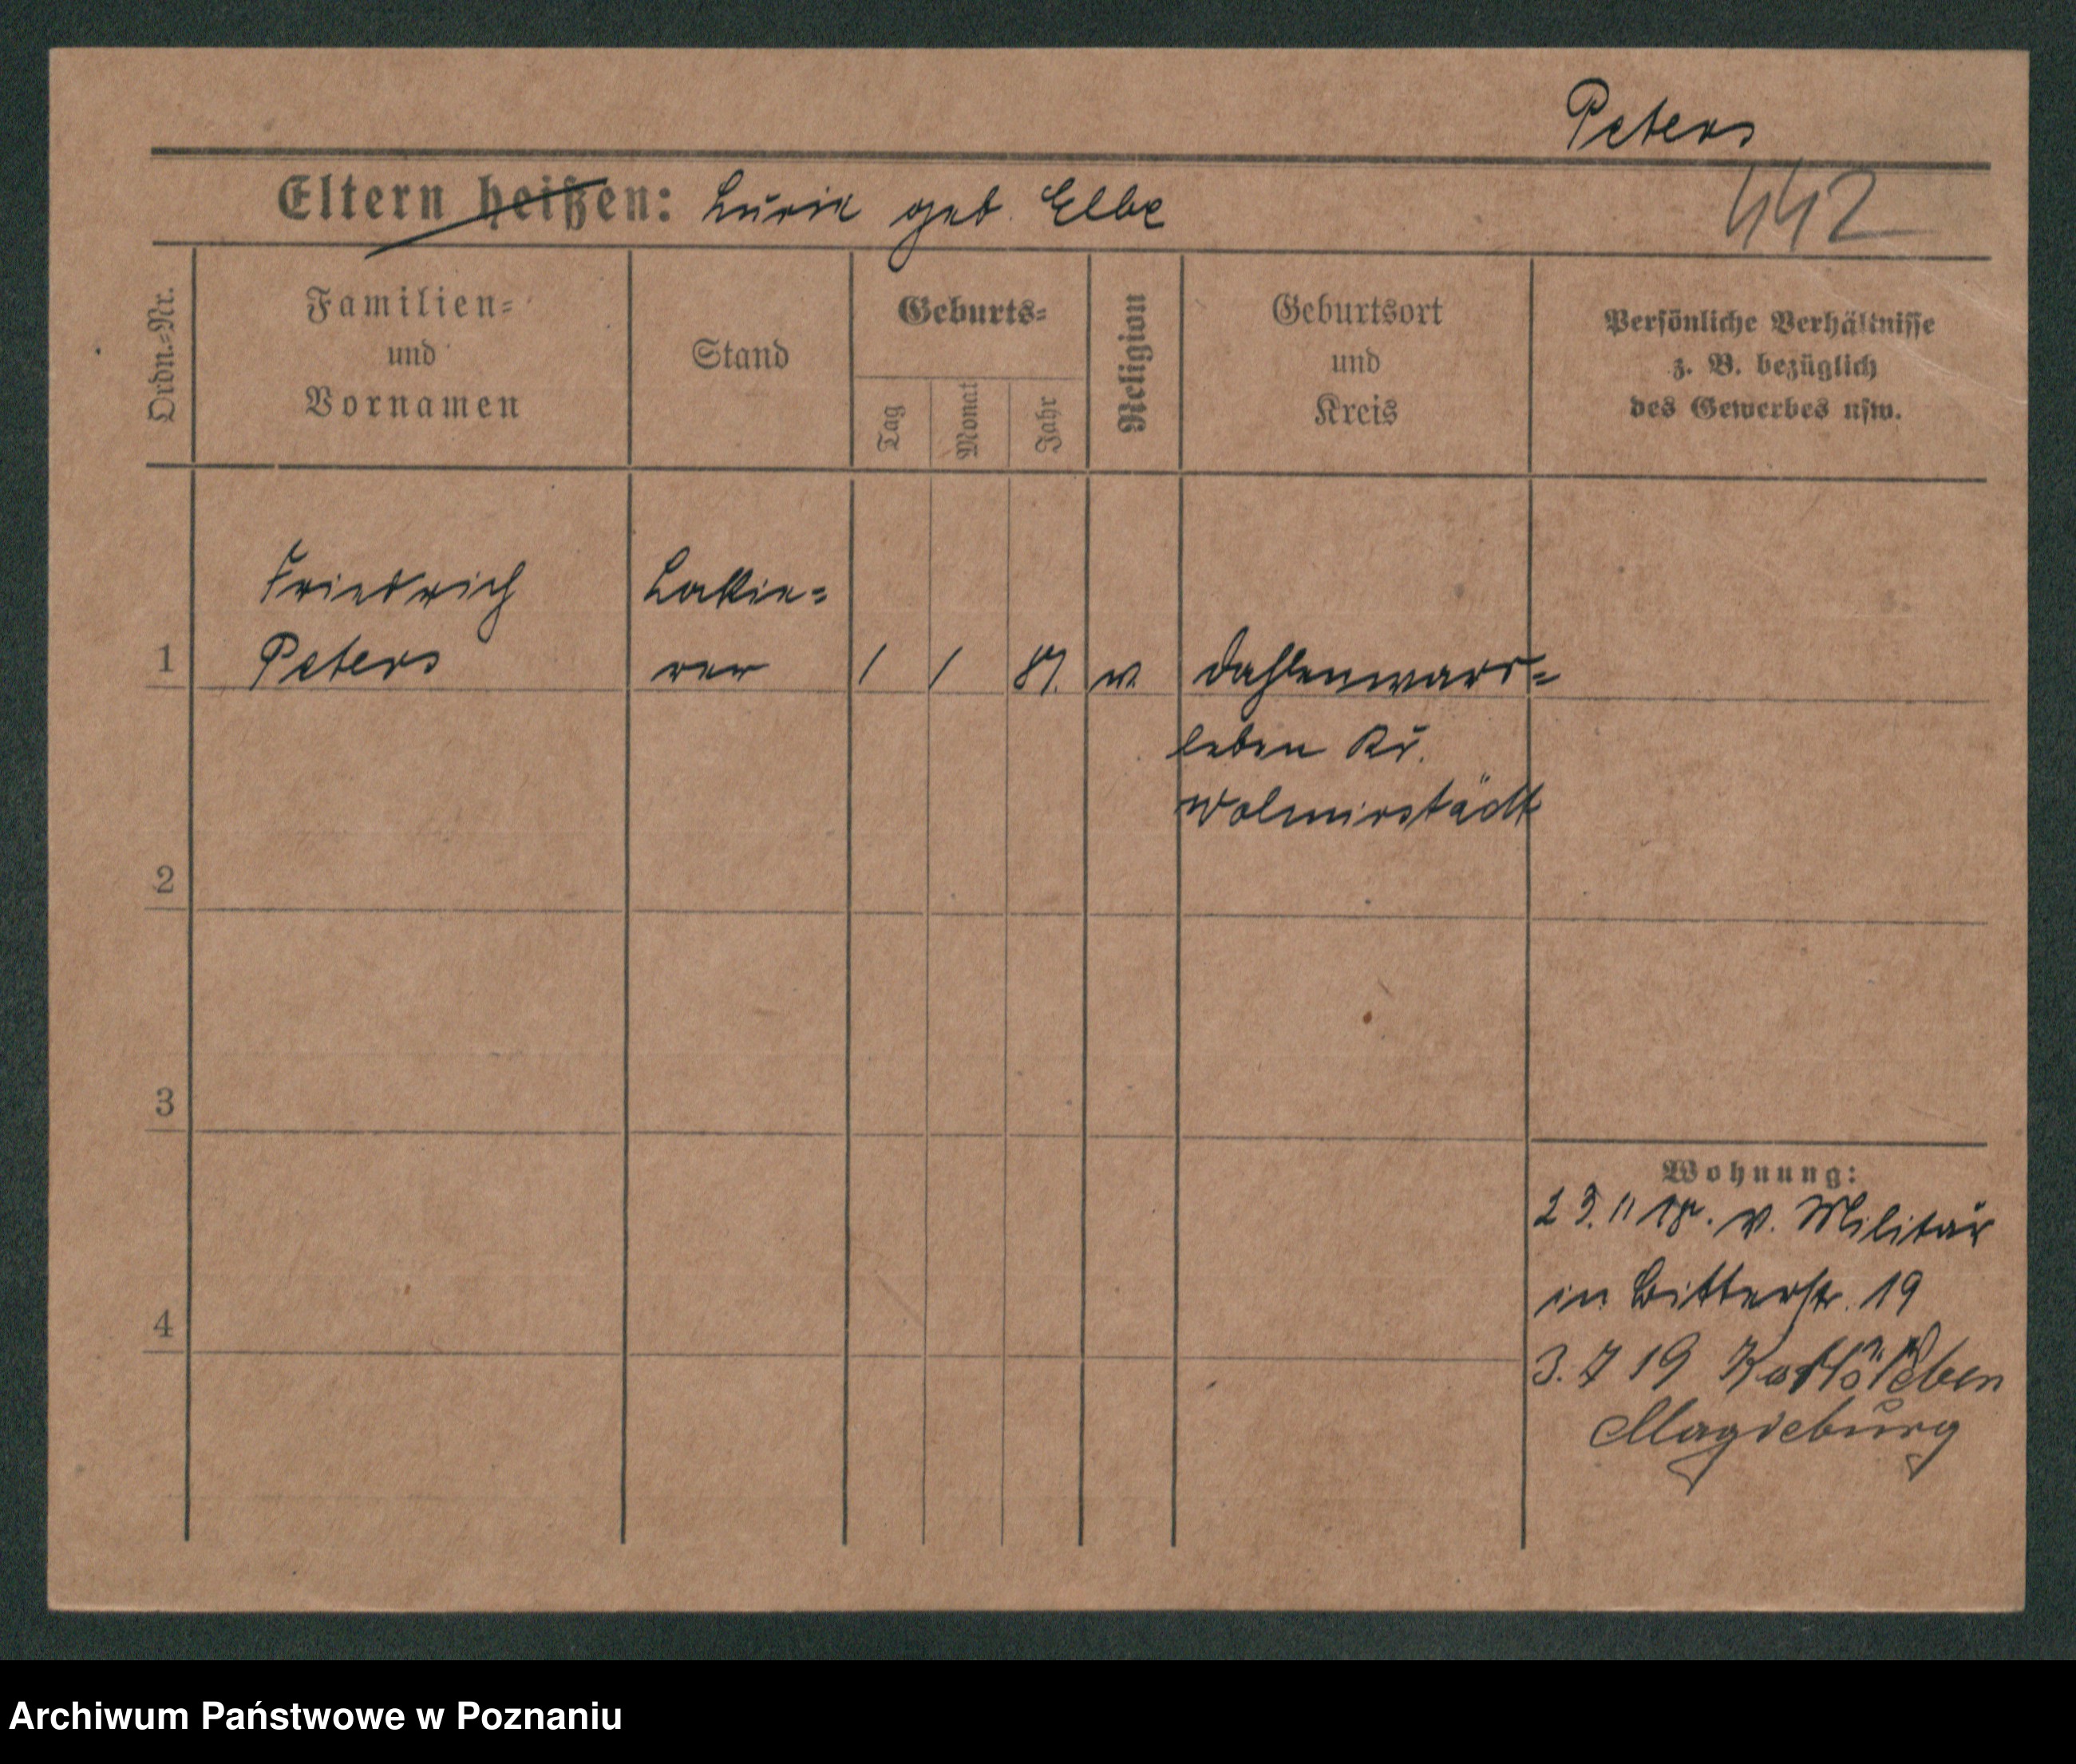 Peters
Eltern heißen: Luise geb. Elbe
442
Ordn.=Nr.
Familien=
und
Vornamen
Stand
Geburts=
Tag
Monat
Jahr
Religion
Geburtsort
und
Kreis
Persönliche Verhältnisse
z. B. bezüglich
des Gewerbes usw.
Friedrich Lackie=
1 Peters rer 1 1 87. Dahlenwars=
leben Kr.
Wolmirstädt
2
3
Wohnung:
23. 11 18. v. Militär
in Ritterstr. 19
4
3. 7 19
Magdeburg
Archiwum Państwowe w Poznaniu